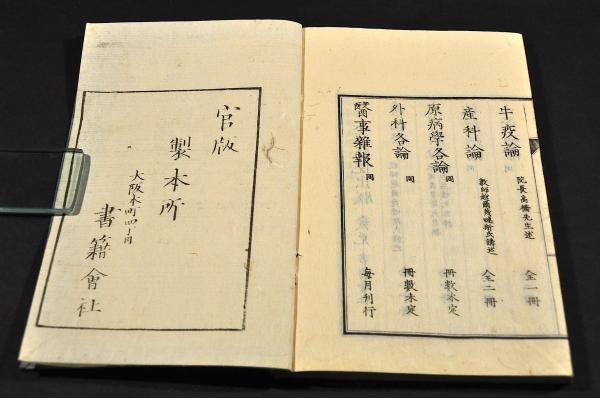 牛疫論 同 院長高橋先生述 全一冊
産科論 同 教師越爾蔑嗹斯氏講述 全二冊
原病學各論 同 冊数未定
外科各論 同 冊数未定
醫事雜報 同 毎月刊行
官版
製本所
大阪本町四丁目
書籍會社